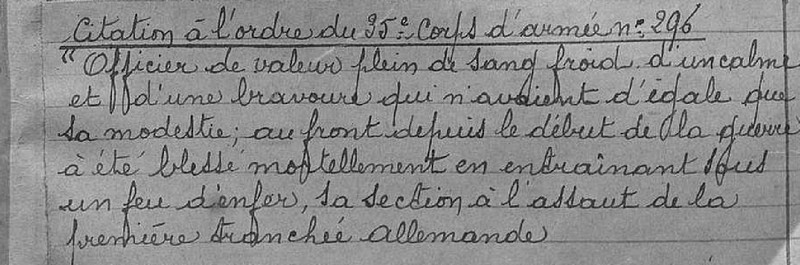 Citation à l'ordre du 35e Corps d'armée no 296
"Officier de valeur plein de sang froid d'un calme
et d'une bravoure qui n'avaient d'égale que
sa modestie; au front depuis le début de la guerre
à été blessé mortellement en entraînant sous
un feu d'enfer, sa section à l'assaut de la
première tranchée allemande